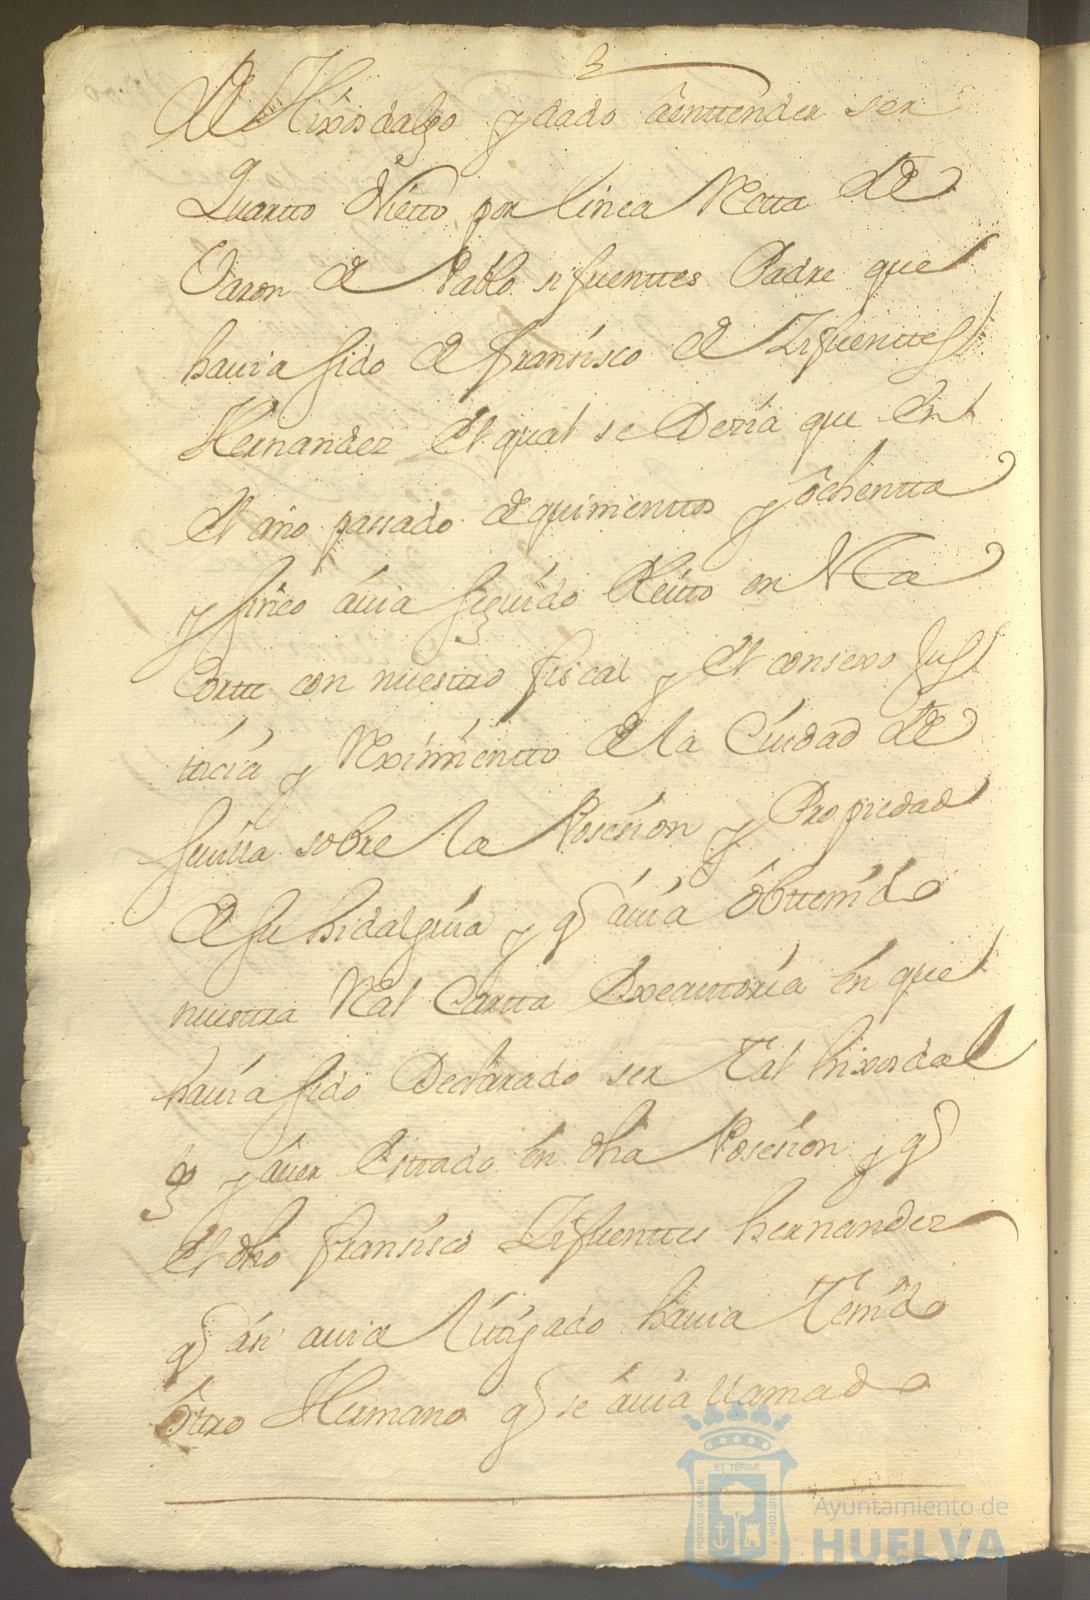 de Hixosdalgo y dado aenttender ser
Quartto Nietto por linea Recta de
Varon de Pablo sifuenttes Padre que
havia sido de fransisco de Zifuenttes
Hernandez el qual se Dezia que en
el año passado de quinienttos y ôchentta
y sinco ávia seguido Pleitto en Nra
Corte con nuestro fiscal y el consexo Jus
ticia y Reximientto de la Ciudad de
sevilla sobre la Posesion y Propiedad
de su hidalguia y q ávia ôbttenido
nuestra Real Cartta Executtoria en que
havia sido Declarado ser Tal hixosdal
go y áver Esttado en dha Posesion y q
el dho fransisco Zifuenttes hernandez
q ási avia Litigado havia Tenido
ôtro Hermano q se ávia llamado
Ayuntamiento de
HUELVA